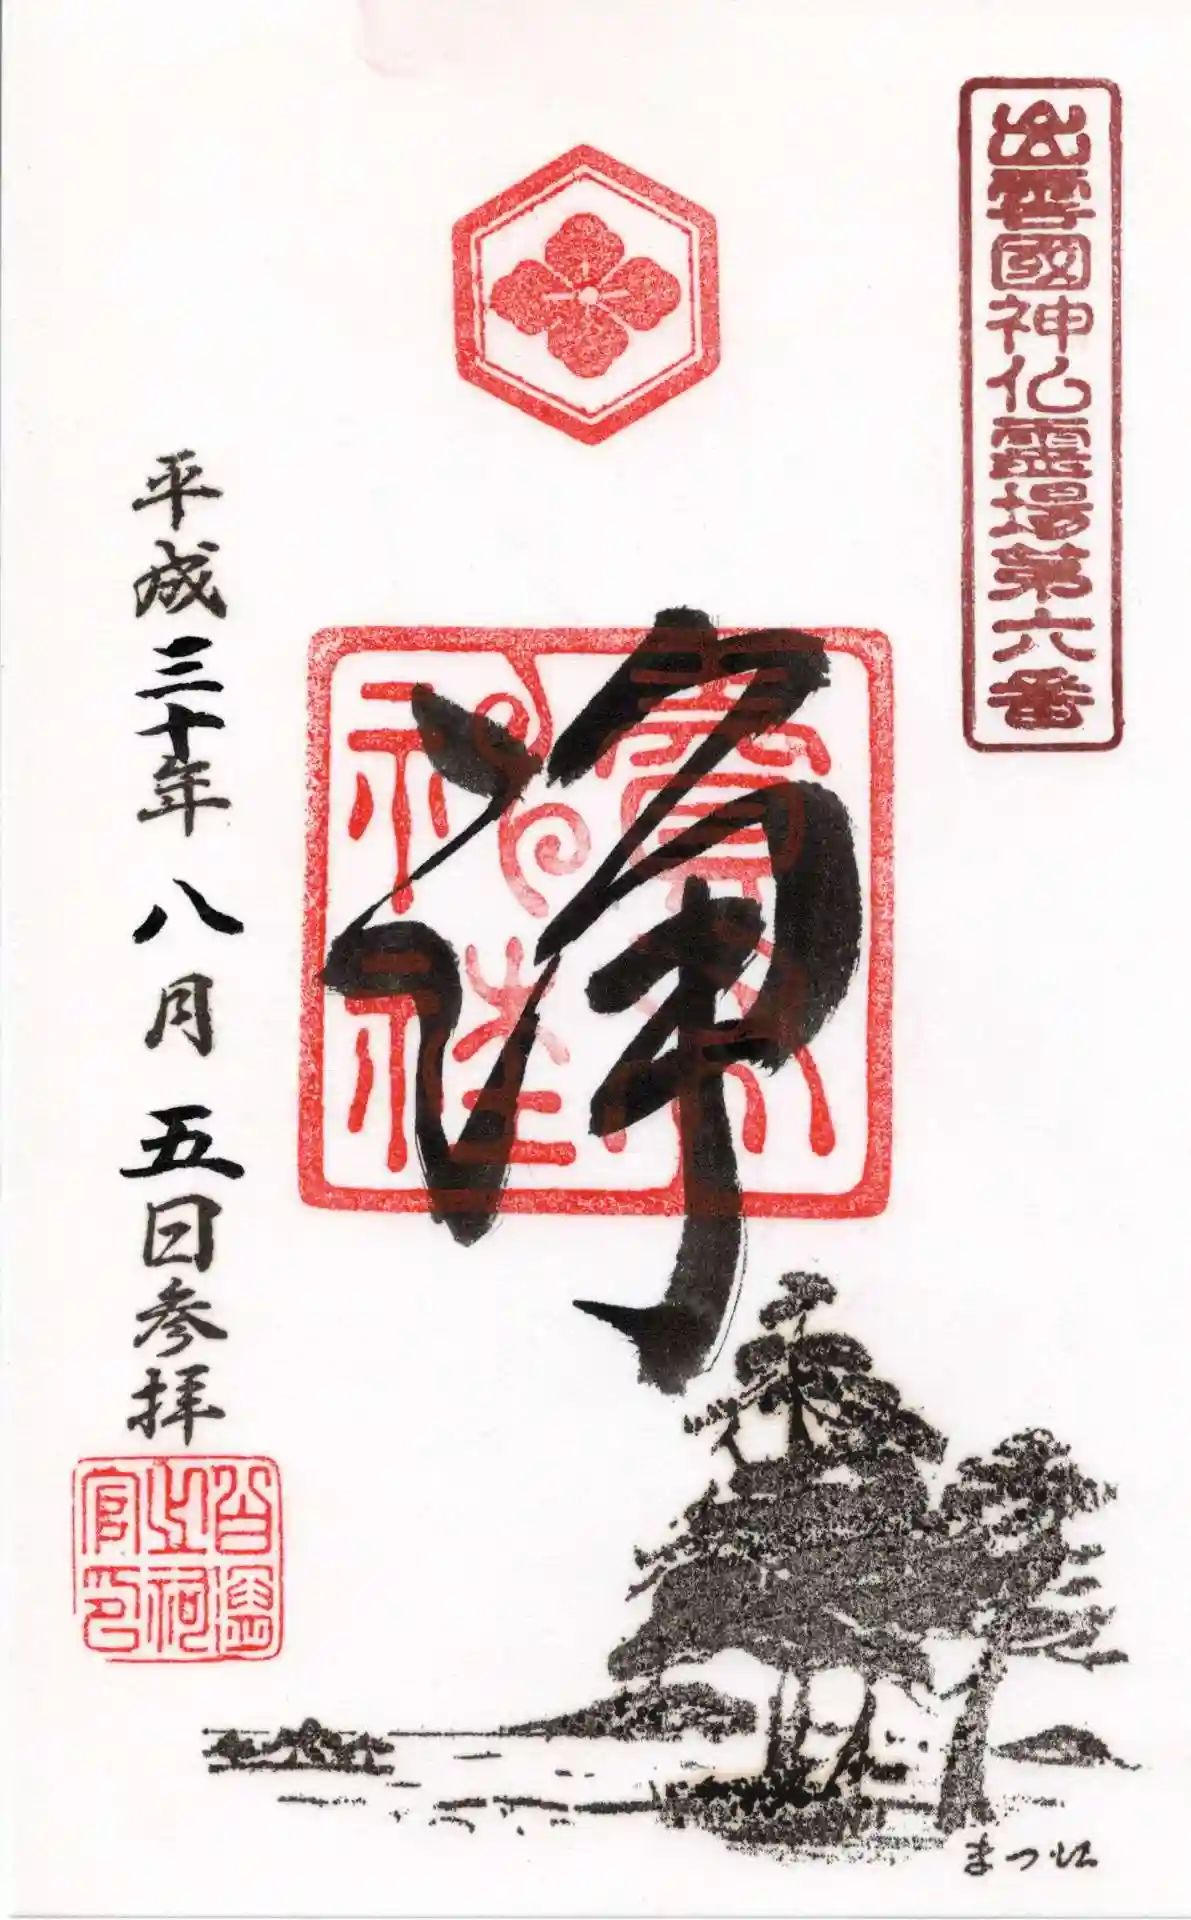 出雲國神仏霊場第六番
浄
賣布神社
平成三十年八月五日参拝
まつ江